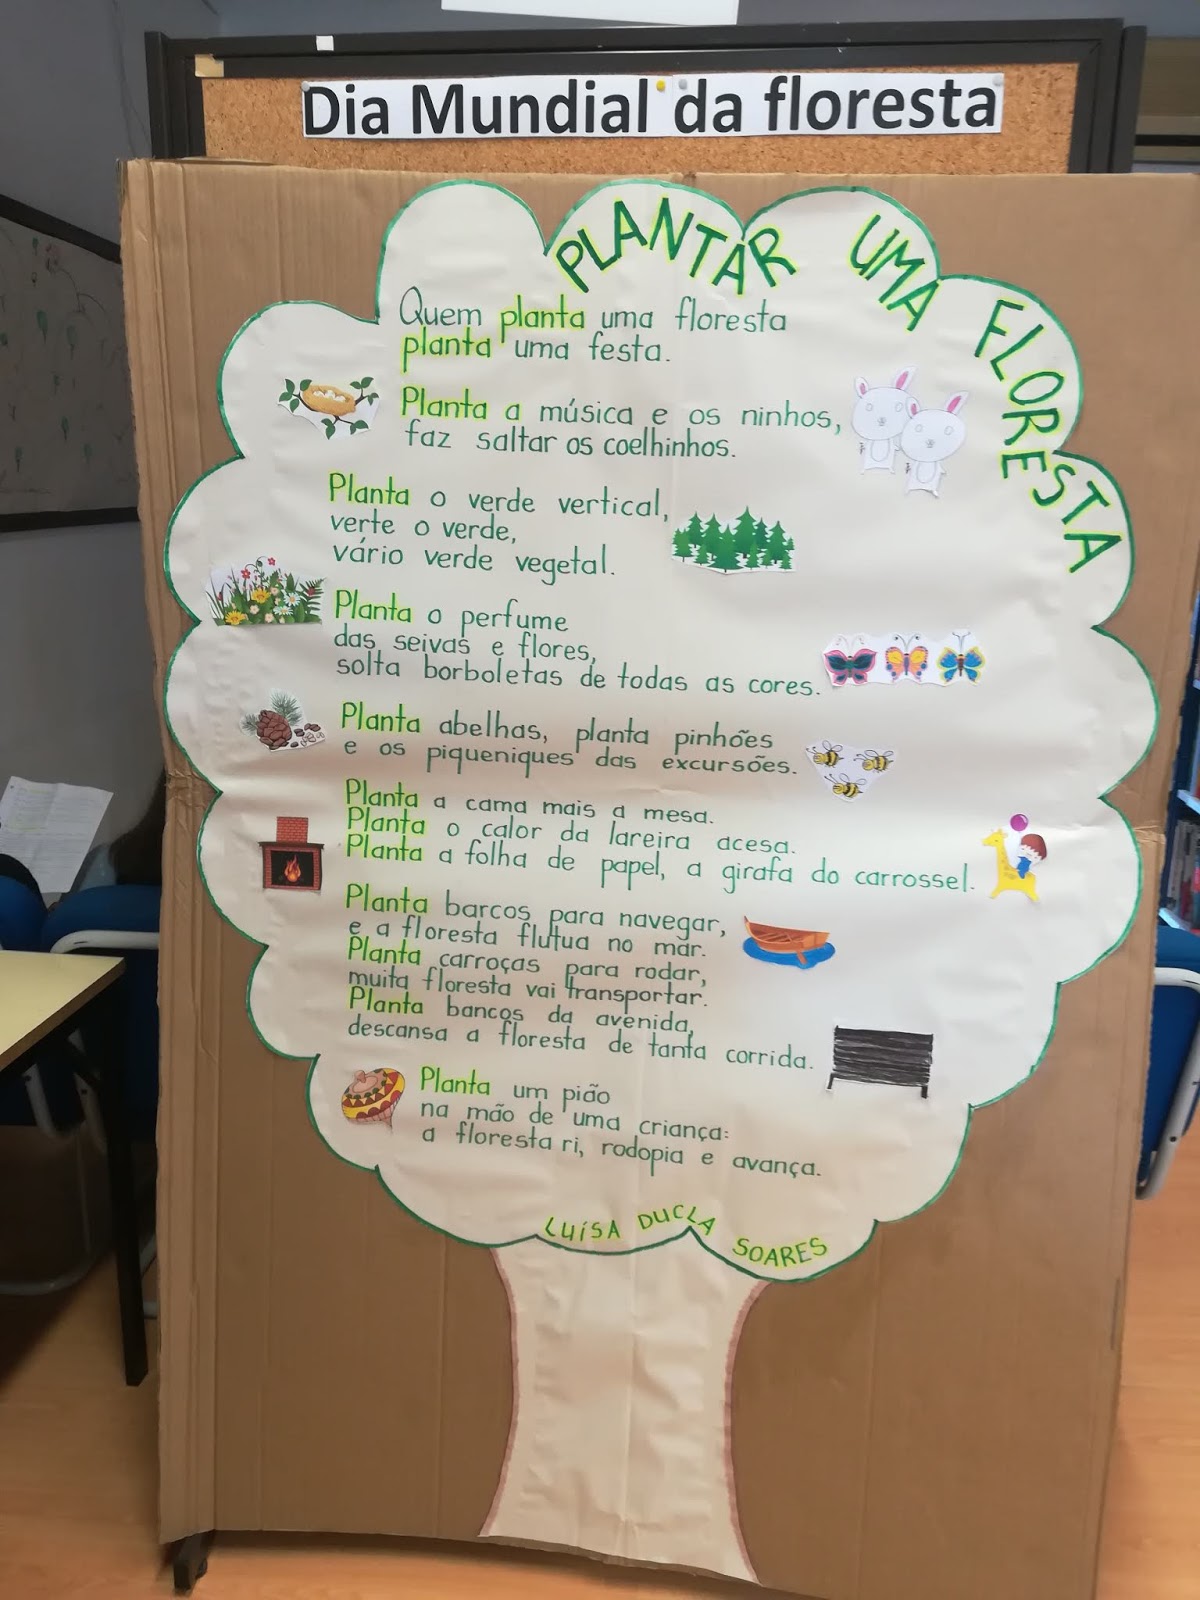 Dia Mundial da floresta
PLANTAR UMA FLORESTA
Quem planta uma floresta
planta uma festa.
Planta a música e os ninhos,
faz saltar os coelhinhos.
Planta o verde vertical,
verte o verde,
vário verde vegetal.
Planta o perfume
das seivas e flores,
solta borboletas de todas as cores.
Planta abelhas, planta pinhões
e os piqueniques das excursões.
Planta a cama mais a mesa.
Planta o calor da lareira acesa.
Planta a folha de papel, a girafa do carrossel.
Planta barcos para navegar,
e a floresta flutua no mar.
Planta carroças para rodar,
muita floresta vai transportar.
Planta bancos da avenida,
descansa a floresta de tanta corrida.
Planta um pião
na mão de uma criança:
a floresta ri, rodopia e avança.
LUÍSA DUCLA SOARES